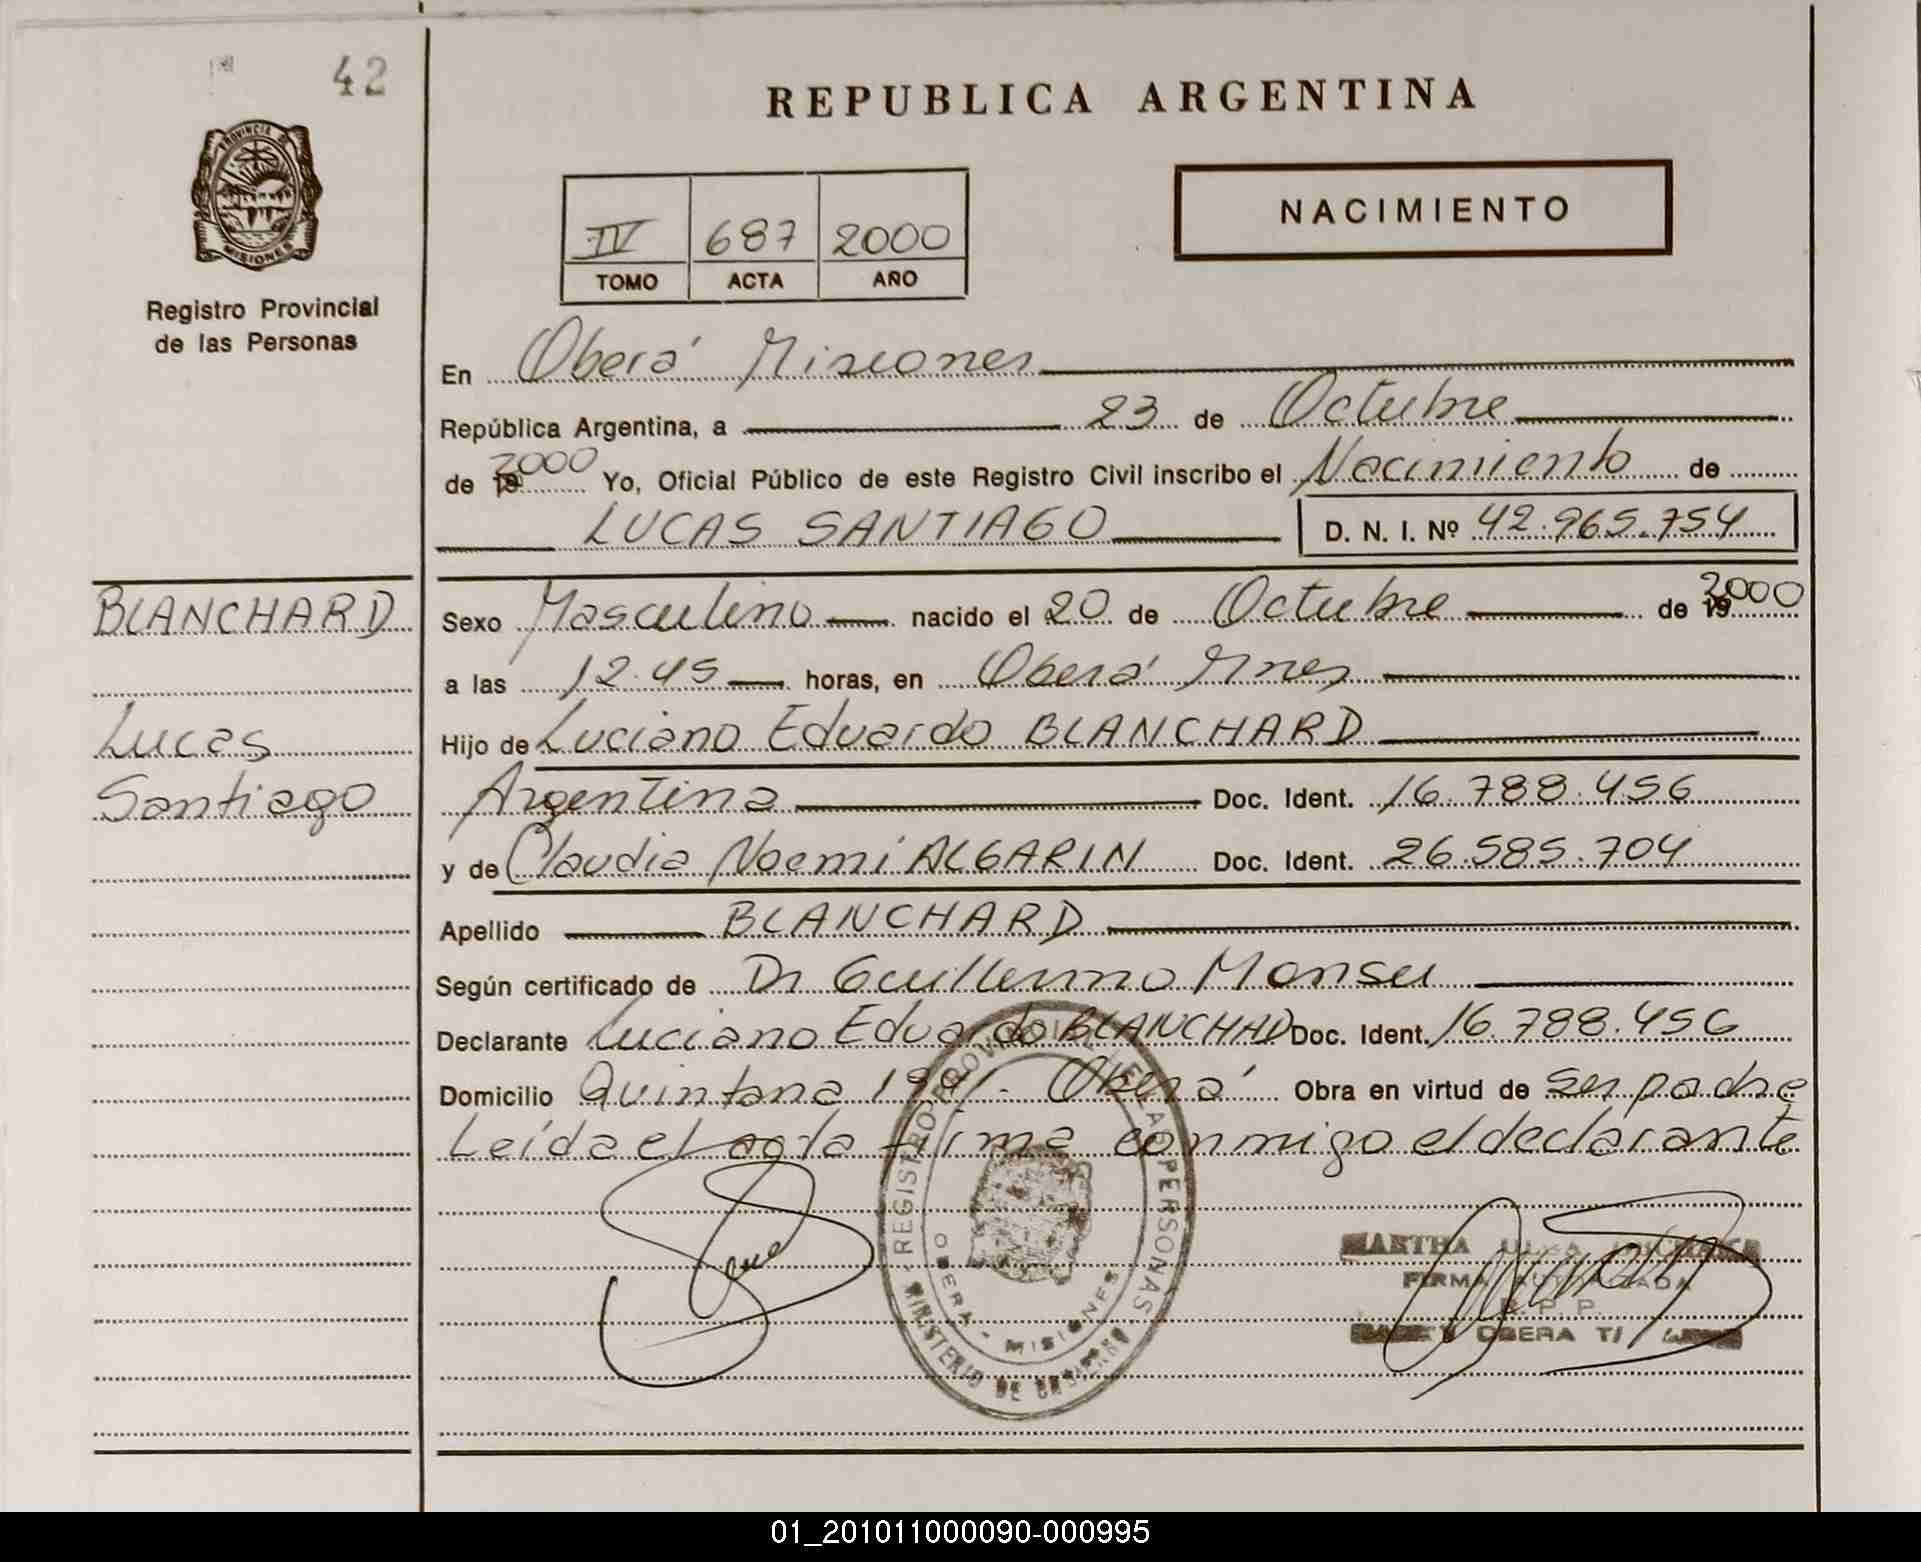 42
REPUBLICA ARGENTINA
PROVINCIA DE
MISIONES
Registro Provincial
de las Personas
IV 687 2000
TOMO ACTA AÑO
NACIMIENTO
En Oberá Misiones
República Argentina, a 23 de Octubre
de 19 2000 Yo, Oficial Público de este Registro Civil inscribo el Nacimiento de
LUCAS SANTIAGO D. N. I. Nº 42.965.754
BLANCHARD
Lucas
Santiago
Sexo Masculino nacido el 20 de Octubre de 19 2000
a las 12.45 horas, en Oberá Mnes
Hijo de Luciano Eduardo BLANCHARD
Argentina Doc. Ident. 16.788.456
y de Claudia Noemí ALGARIN Doc. Ident. 26.585.704
Apellido BLANCHARD
Según certificado de Dr Guillermo Monsu
Declarante Luciano Eduardo BLANCHAD Doc. Ident. 16.788.456
Domicilio Quintana 199 - Oberá Obra en virtud de ser padre
Leída el acta firma conmigo el declarante
REGISTRO PROVINCIAL DE LAS PERSONAS
OBERA - MISIONES
MINISTERIO DE GOBIERNO
MARTHA
FIRMA AUTORIZADA
R. P. P.
OBERA
01_201011000090-000995